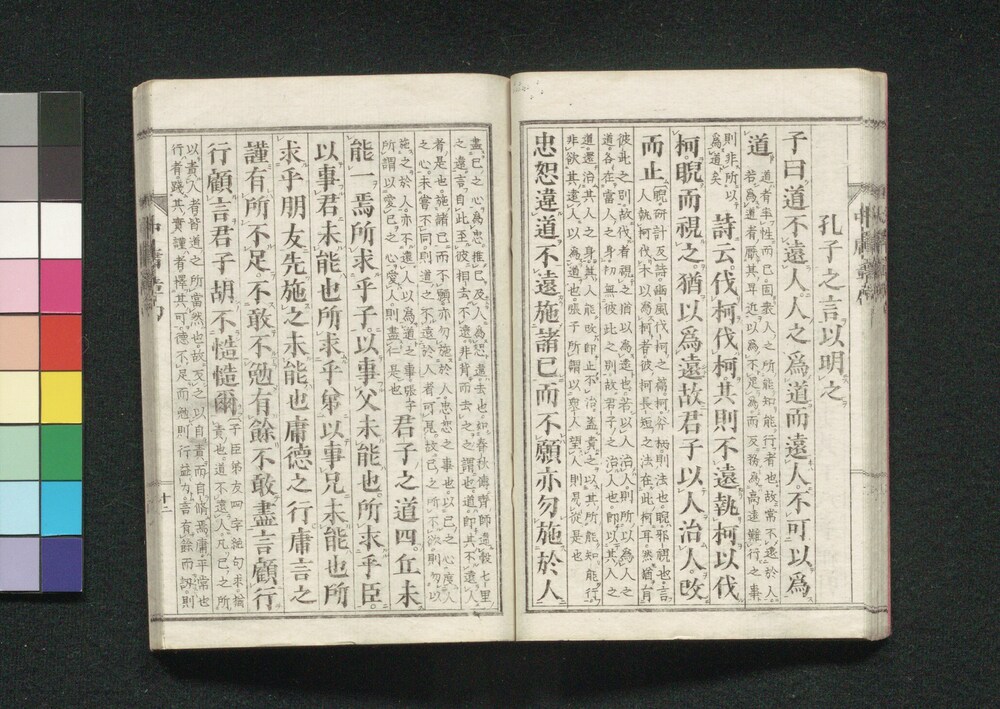 孔子之言以明之
子曰道不遠人人之爲道而遠人不可以爲
道
道者率性而已固衆人之所能知能行者也故常不遠於人
若爲道者厭其卑近以爲不足爲而反務爲高遠難行之事
則非所以
爲道矣
詩云伐柯伐柯其則不遠執柯以伐
柯睨而視之猶以爲遠故君子以人治人改
而止
睨研計反詩豳風伐柯之篇柯斧柄則法也睨邪視也言
人執柯伐木以爲柯者彼柯長短之法在此柯耳然猶有
彼此之別故伐者視之猶以爲遠也若以人治人則所以爲人之
道各在當人之身初無彼此之別故君子之治人也即以其人之
道還治其人之身其人能改即止不治蓋責之以其所能知能行
非欲其遠人以爲道也張子所謂以衆人望人則易從是也
忠恕違道不遠施諸己而不願亦勿施於人
盡己之心爲忠推己及人爲恕違去也如春秋傳齊師違穀七里
之違言自此至彼相去不遠非背而去之之謂也道即其不遠人
者是也施諸己而不願亦勿施於人忠恕之事也以己之心度人
之心未嘗不同則道之不遠於人者可見故己之所不欲則勿以
施之於人亦不遠人以爲道之事張子
所謂以愛己之心愛人則盡仁是也
君子之道四丘未
能一焉所求乎子以事父未能也所求乎臣
以事君未能也所求乎弟以事兄未能也所
求乎朋友先施之未能也庸德之行庸言之
謹有所不足不敢不勉有餘不敢盡言顧行
行顧言君子胡不慥慥爾
子臣弟友四字絕句求猶
責也道不遠人凡己之所
以責人者皆道之所當然也故反之以自責而自脩焉庸平常也
行者踐其實謹者擇其可德不足而勉則行益力言有餘而訒則
十二